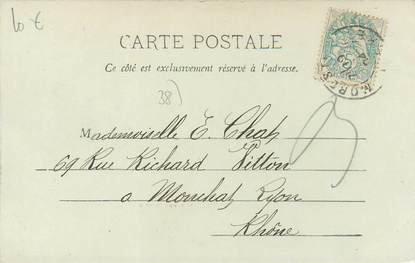 10 €
CARTE POSTALE
Ce côté est exclusivement réservé à l'adresse.
38
Mademoiselle E. Chat
69 Rue Richard Vitton
a Monchat Lyon
Rhône